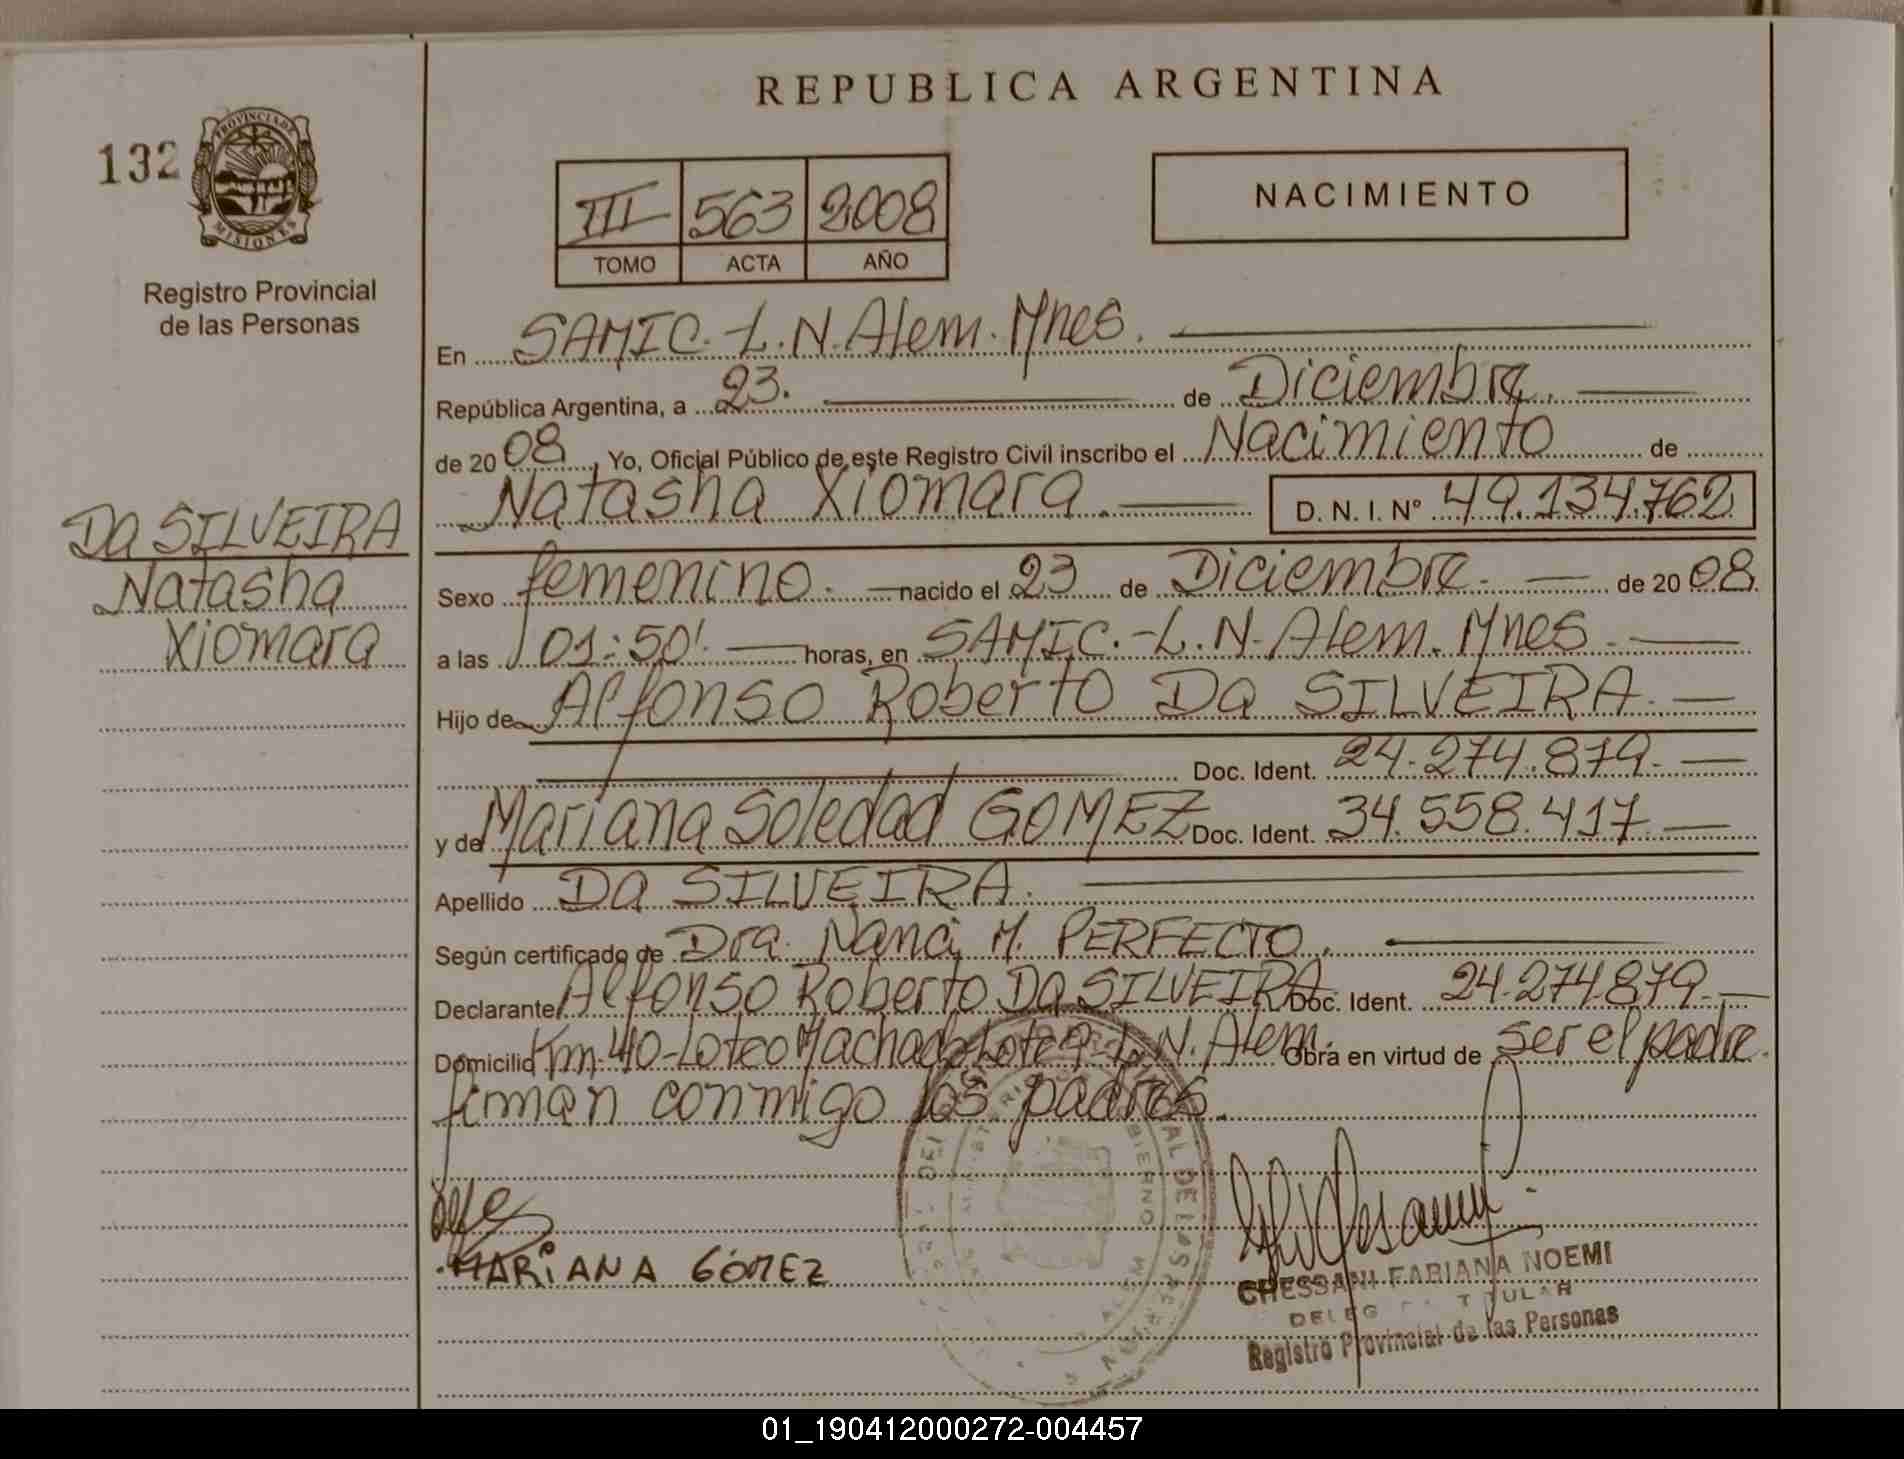 REPUBLICA ARGENTINA
132
PROVINCIA DE
MISIONES
Registro Provincial
de las Personas
III 563 2008
TOMO ACTA AÑO
NACIMIENTO
En SAMIC.-L.N.Alem.Mnes.
República Argentina, a 23. de Diciembre.
de 20 08, Yo, Oficial Público de este Registro Civil inscribo el Nacimiento de
Natasha Xiomara. D. N. I. Nº 49.134.762
DA SILVEIRA
Natasha
Xiomara
Sexo femenino. nacido el 23 de Diciembre. de 20 08.
a las 01:50'. horas, en SAMIC.-L.N-Alem.Mnes.
Hijo de Alfonso Roberto Da SILVEIRA.
Doc. Ident. 24.274.879.
y de Mariana Soledad GOMEZ Doc. Ident. 34.558.417.
Apellido Da SILVEIRA.
Según certificado de Dra. Nanci M. PERFECTO.
Declarante Alfonso Roberto Da SILVEIRA Doc. Ident. 24.274.879.
Domicilio Km.40-Loteo Machado Lote 9 L.N.Alem. Obra en virtud de ser el padre.
firman conmigo los padres.
MARIANA GÓMEZ
CHESSANI FABIANA NOEMI
TITULAR
Registro Provincial de las Personas
01_190412000272-004457